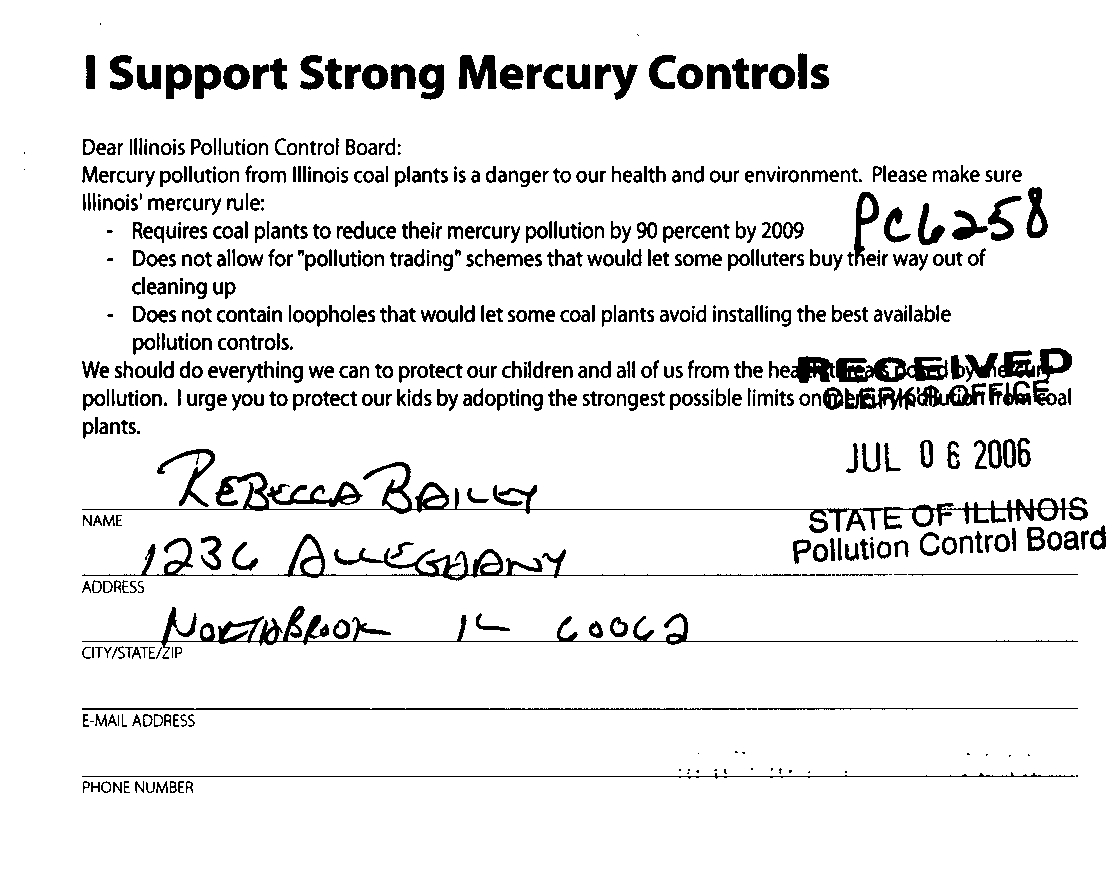 I Support Strong Mercury Controls
Dear Illinois Pollution Control Board:
Mercury pollution from Illinois coal plants is a danger to our health and our environment. Please make sure
Illinois' mercury rule:
- Requires coal plants to reduce their mercury pollution by 90 percent by 2009
PC6258
- Does not allow for "pollution trading" schemes that would let some polluters buy their way out of
cleaning up
- Does not contain loopholes that would let some coal plants avoid installing the best available
pollution controls.
We should do everything we can to protect our children and all of us from the health threats posed by mercury
RECEIVED
pollution. I urge you to protect our kids by adopting the strongest possible limits on mercury pollution from coal
CLERK'S OFFICE
plants.
JUL 06 2006
REBECCA BAILEY
NAME
STATE OF ILLINOIS
Pollution Control Board
1236 ALLEGHANY
ADDRESS
NORTHBROOK IL 60062
CITY/STATE/ZIP
E-MAIL ADDRESS
PHONE NUMBER